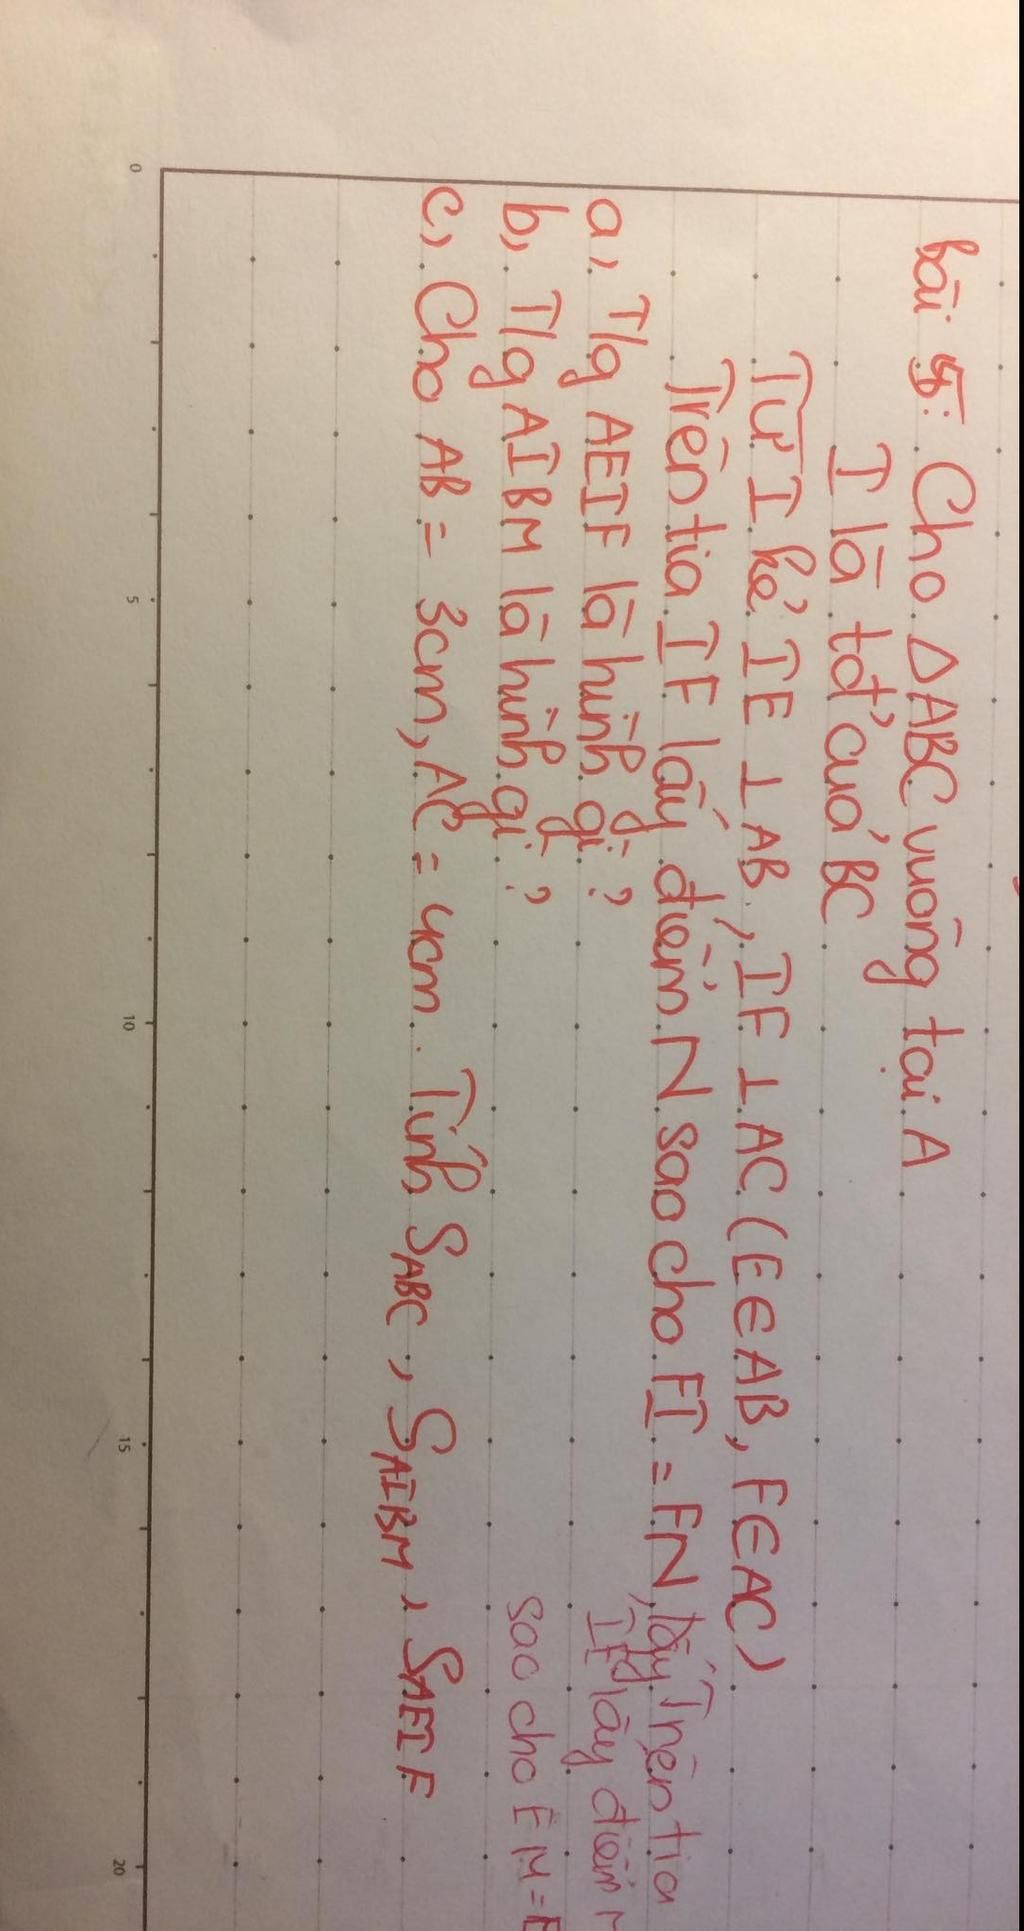 bài 5: Cho ΔABC vuông tại A
I là tđ' của BC
Từ I kẻ IE ⊥ AB, IF ⊥ AC (E ∈ AB, F ∈ AC)
Trên tia IF lấy điểm N sao cho FI = FN, Trên tia
lấy điểm
sao cho EM =
a, T/g AEIF là hình gì?
b, T/g AIBM là hình gì?
c, Cho AB = 3cm, AC = 4cm. Tính SABC, SAIBM, SAEIF
0
5
10
15
20